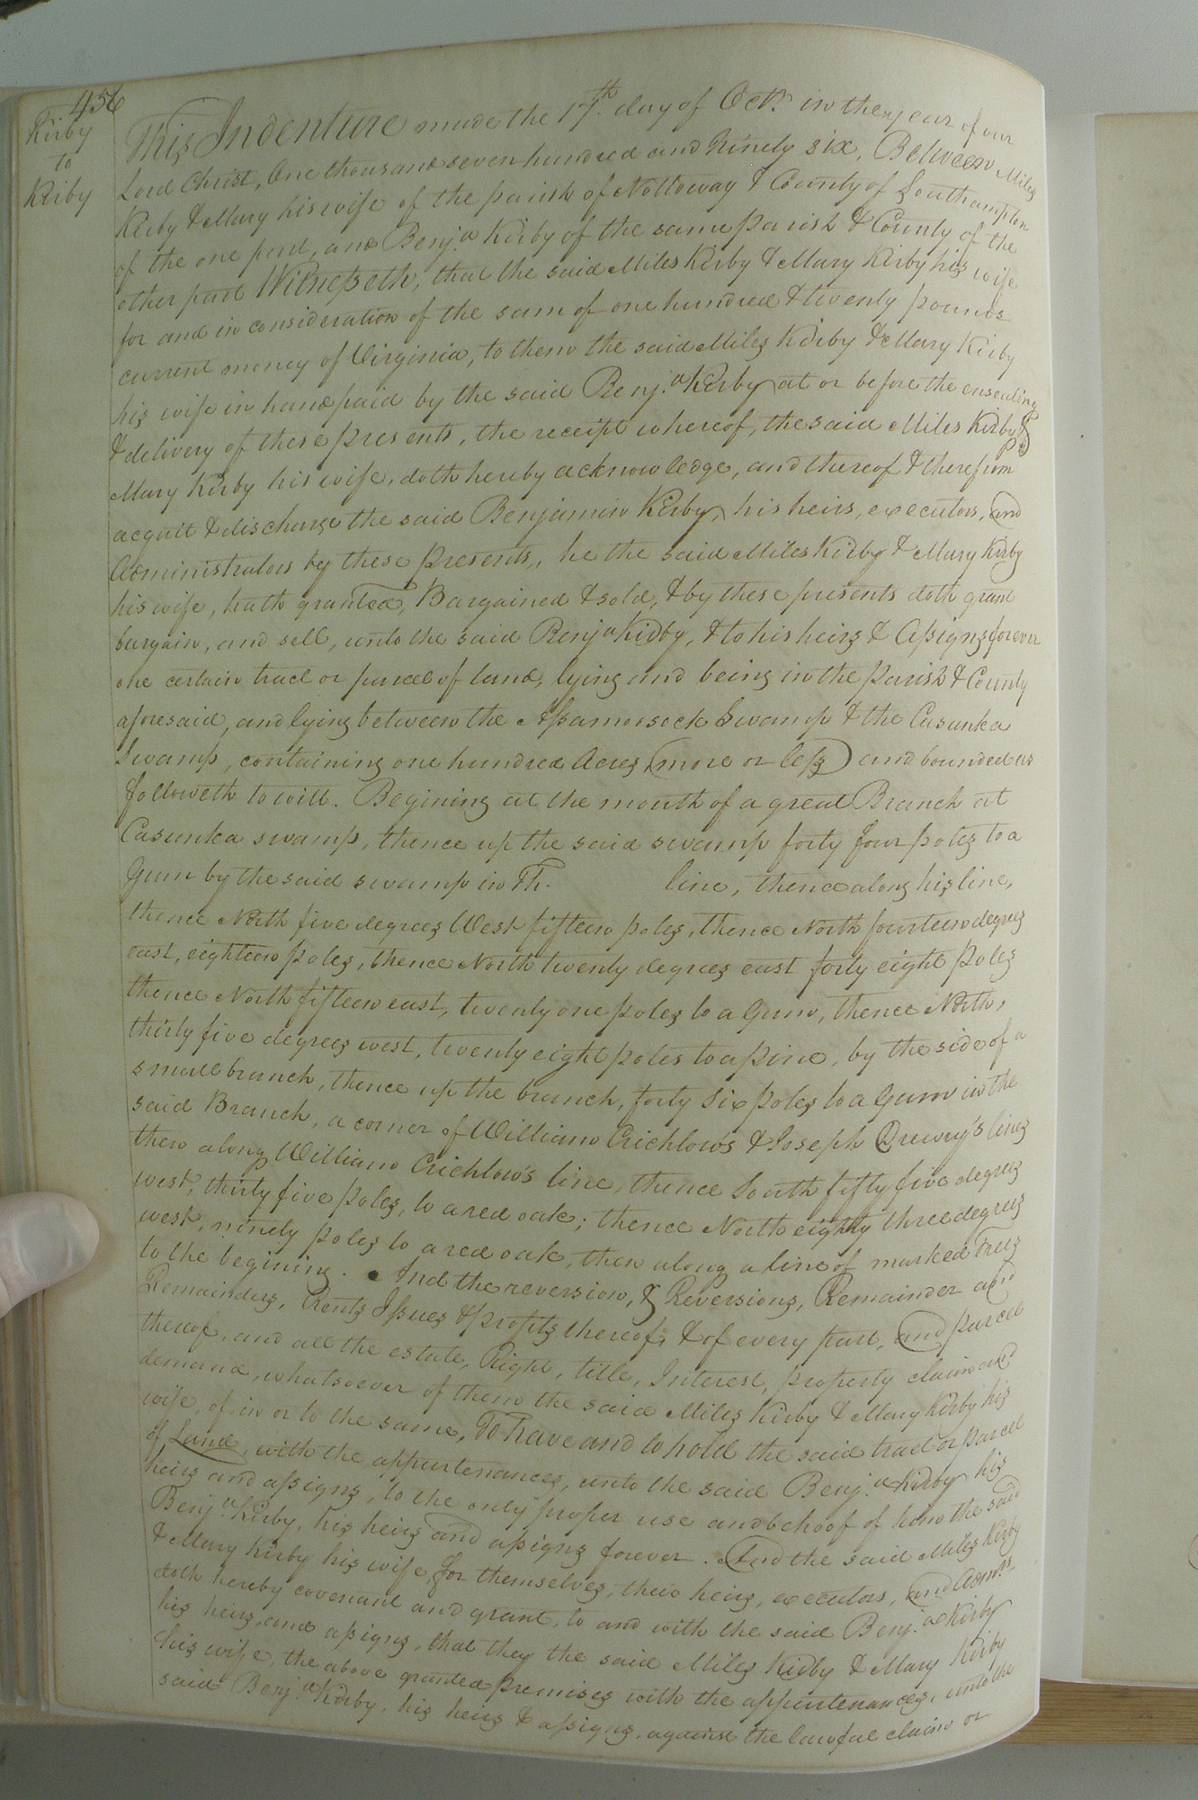 456
Kirby
to
Kirby
This Indenture made the 17th day of Octr. in the year of our
Lord Christ, One thousand seven hundred and Ninety six, Between Miles
Kirby & Mary his wife of the parish of Nottoway & County of Southampton
of the one part, and Benj.a Kirby of the same parish & County of the
other part Witnesseth, that the said Miles Kirby & Mary Kirby his wife
for and in consideration of the sum of one hundred & twenty pounds
current money of Virginia, to them the said Miles Kirby & Mary Kirby
his wife in hand paid by the said Benj.a Kirby at or before the ensealing
& delivery of these presents, the receipt whereof, the said Miles Kirby &
Mary Kirby his wife, doth hereby acknowledge, and thereof & therefrom
acquit & discharge the said Benjamin Kirby, his heirs, executors, and
Administrators by these presents, he the said Miles Kirby & Mary Kirby
his wife, hath granted, Bargained & sold, & by these presents doth grant
bargain, and sell, unto the said Benj.a Kirby, & to his heirs & Assigns forever
one certain tract or parcel of land, lying and being in the parish & County
aforesaid, and lying between the Assamoosock Swamp & the Casunka
Swamp, containing one hundred Acres (more or less) and bounded as
followeth to wit. Begining at the mouth of a great Branch at
Casunka swamp, thence up the said swamp forty four poles to a
Gum by the said swamp in Th. line, thence along his line,
thence North five degrees West fifteen poles, thence North fourteen degrees
east, eighteen poles, thence North twenty degrees east forty eight poles
thence North fifteen east, twenty one poles to a Gum, thence North,
thirty five degrees west, twenty eight poles to a pine, by the side of a
small branch, thence up the branch, forty six poles to a Gum in the
said Branch, a corner of William Crichlow's & Joseph Drewry's lines
then along William Crichlow's line, thence South fifty five degrees
west, thirty five poles, to a red oak; thence North eighty three degrees
west, ninety poles to a red oak, then along a line of marked trees
to the begining. And the reversion, & Reversions, Remainder and
Remainders, Rents Issues & profits thereof, & of every part, and parcel
thereof, and all the estate, Right, title, Interest, property claim and
demand, whatsoever of them the said Miles Kirby & Mary Kirby his
wife, of in or to the same, To have and to hold the said tract or parcel
of Land, with the appurtenances, unto the said Benj.a Kirby his
heirs and assigns, to the only proper use and behoof of him the said
Benj.a Kirby, his heirs and assigns forever. And the said Miles Kirby
& Mary Kirby his wife, for themselves, their heirs, executors, and Admrs.
doth hereby covenant and grant, to and with the said Benj.a Kirby
his heirs, and assigns, that they the said Miles Kirby & Mary Kirby
his wife, the above granted premises with the appurtenances, unto the
said Benj.a Kirby, his heirs & assigns, against the lawful claim or